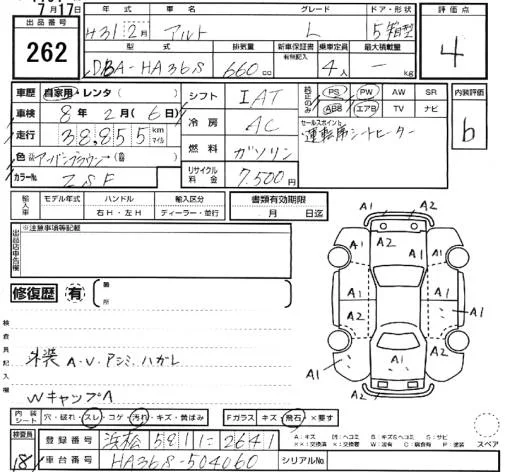 7月17日
出品番号
262
年式 車名 グレード ドア・形状
H31/2月 アルト L 5 箱型
型式 排気量 新車保証書 乗車定員 最大積載量
有無記入
DBA-HA36S 660cc 4人 — kg
評価点
4
車歴 自家用・レンタ ( )
車検 8年2月(6日)
走行 38,855 km マイル
色 アーバンブラウン
カラーNo. ZSF
シフト IAT
冷房 AC
燃料 ガソリン
リサイクル料金 7,500円
純正のみ
PS PW AW SR
ABS エアB TV ナビ
セールスポイント
運転席シートヒーター
内装評価
b
輸入車 モデル年式 ハンドル 輸入区分
右H・左H ディーラー・並行
書類有効期限
月 日迄
出品店申告欄
※注意事項等記載
修復歴 有 箇所
検査員記入欄
外装 A・U・アシミ・ハガレ
Wキャップ A
A1 A2
A1 A2
A1
A2 A1
A2 A2
A1
A1 A1
A2
内装シート 穴・破れ・スレ・コゲ・汚れ・キズ・黄ばみ
Fガラス キズ・飛石・×要す
A:キズ U:ヘコミ B:キズ&ヘコミ S:サビ
××:交換済 ×:交換要 W:波有 C:腐食有 P:塗装
スペア
検査員
18
登録番号 浜松 581 に 2641
車台番号 HA36S-504060
シリアルNo.